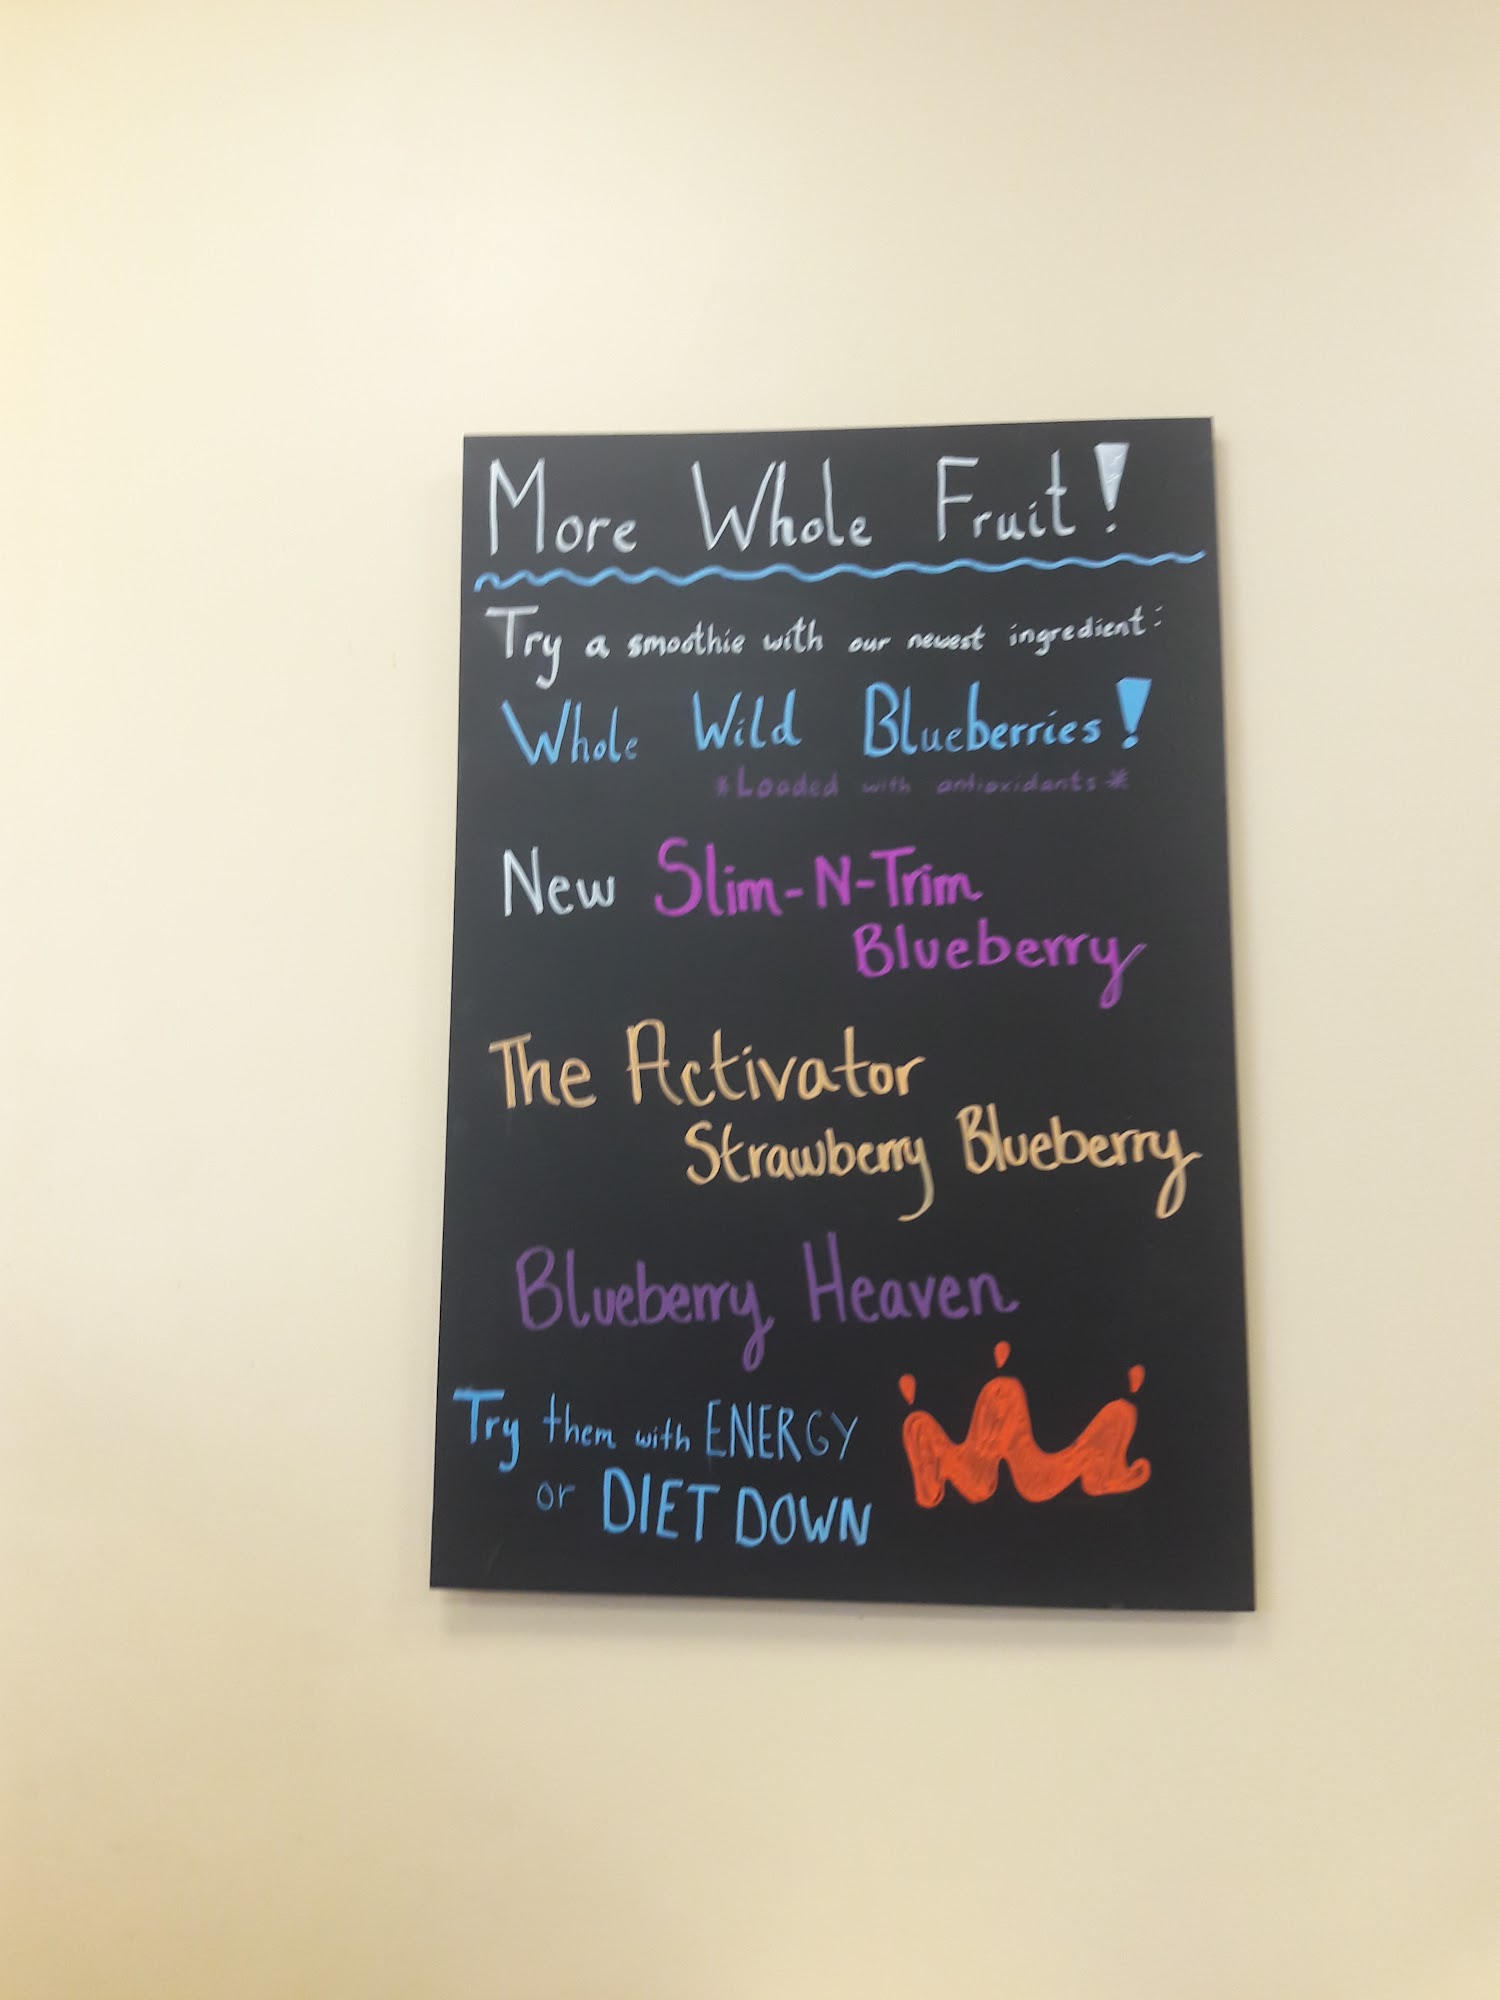 More Whole Fruit!
Try a smoothie with our newest ingredient:
Whole Wild Blueberries!
*Loaded with antioxidants*
New Slim-N-Trim
Blueberry
The Activator
Strawberry Blueberry
Blueberry Heaven
Try them with ENERGY
or DIET DOWN